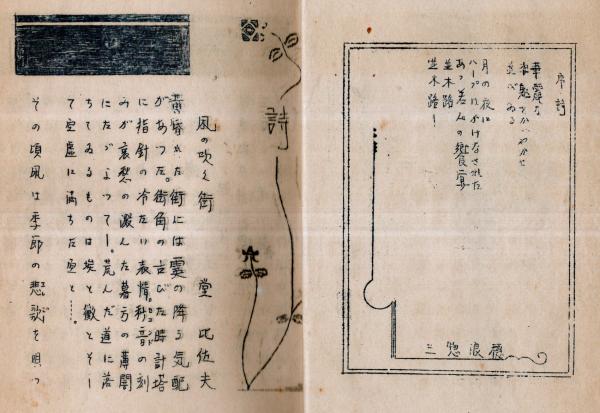 序詩
華麗な
並べゐる
月の夜に
ハープはかけなされた
あゝ若人の饗宴
並木路
並木路!
詩
風の吹く街
堂 比佐夫
黄昏れた街には霙の降る気配
があつた。街角の古びた時計塔
に指針の冷たい表情。秒音の刻
みが哀愁の澱んだ暮方の薄闇
にたゞよつて―。荒んだ道に落
ちてゐるものは埃と黴とそし
て空虚に満ちた
その頃風は季節の悲歌を唄つ